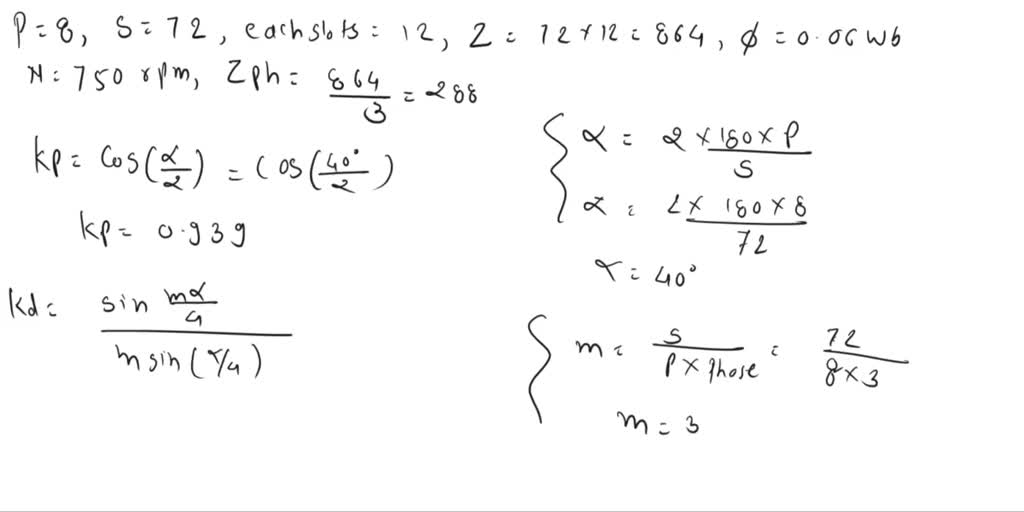 P = 8, S = 72, each slots = 12, Z = 72 × 12 = 864, ϕ = 0.06 wb
N = 750 rpm, Zph = 864/3 = 288
kp = Cos(α/2) = Cos(40°/2)
kp = 0.939
α = 2 × 180 × P / S
α = 2 × 180 × 8 / 72
α = 40°
kd = sin mα/4 / m sin(α/4)
m = S / P × phase = 72 / 8 × 3
m = 3